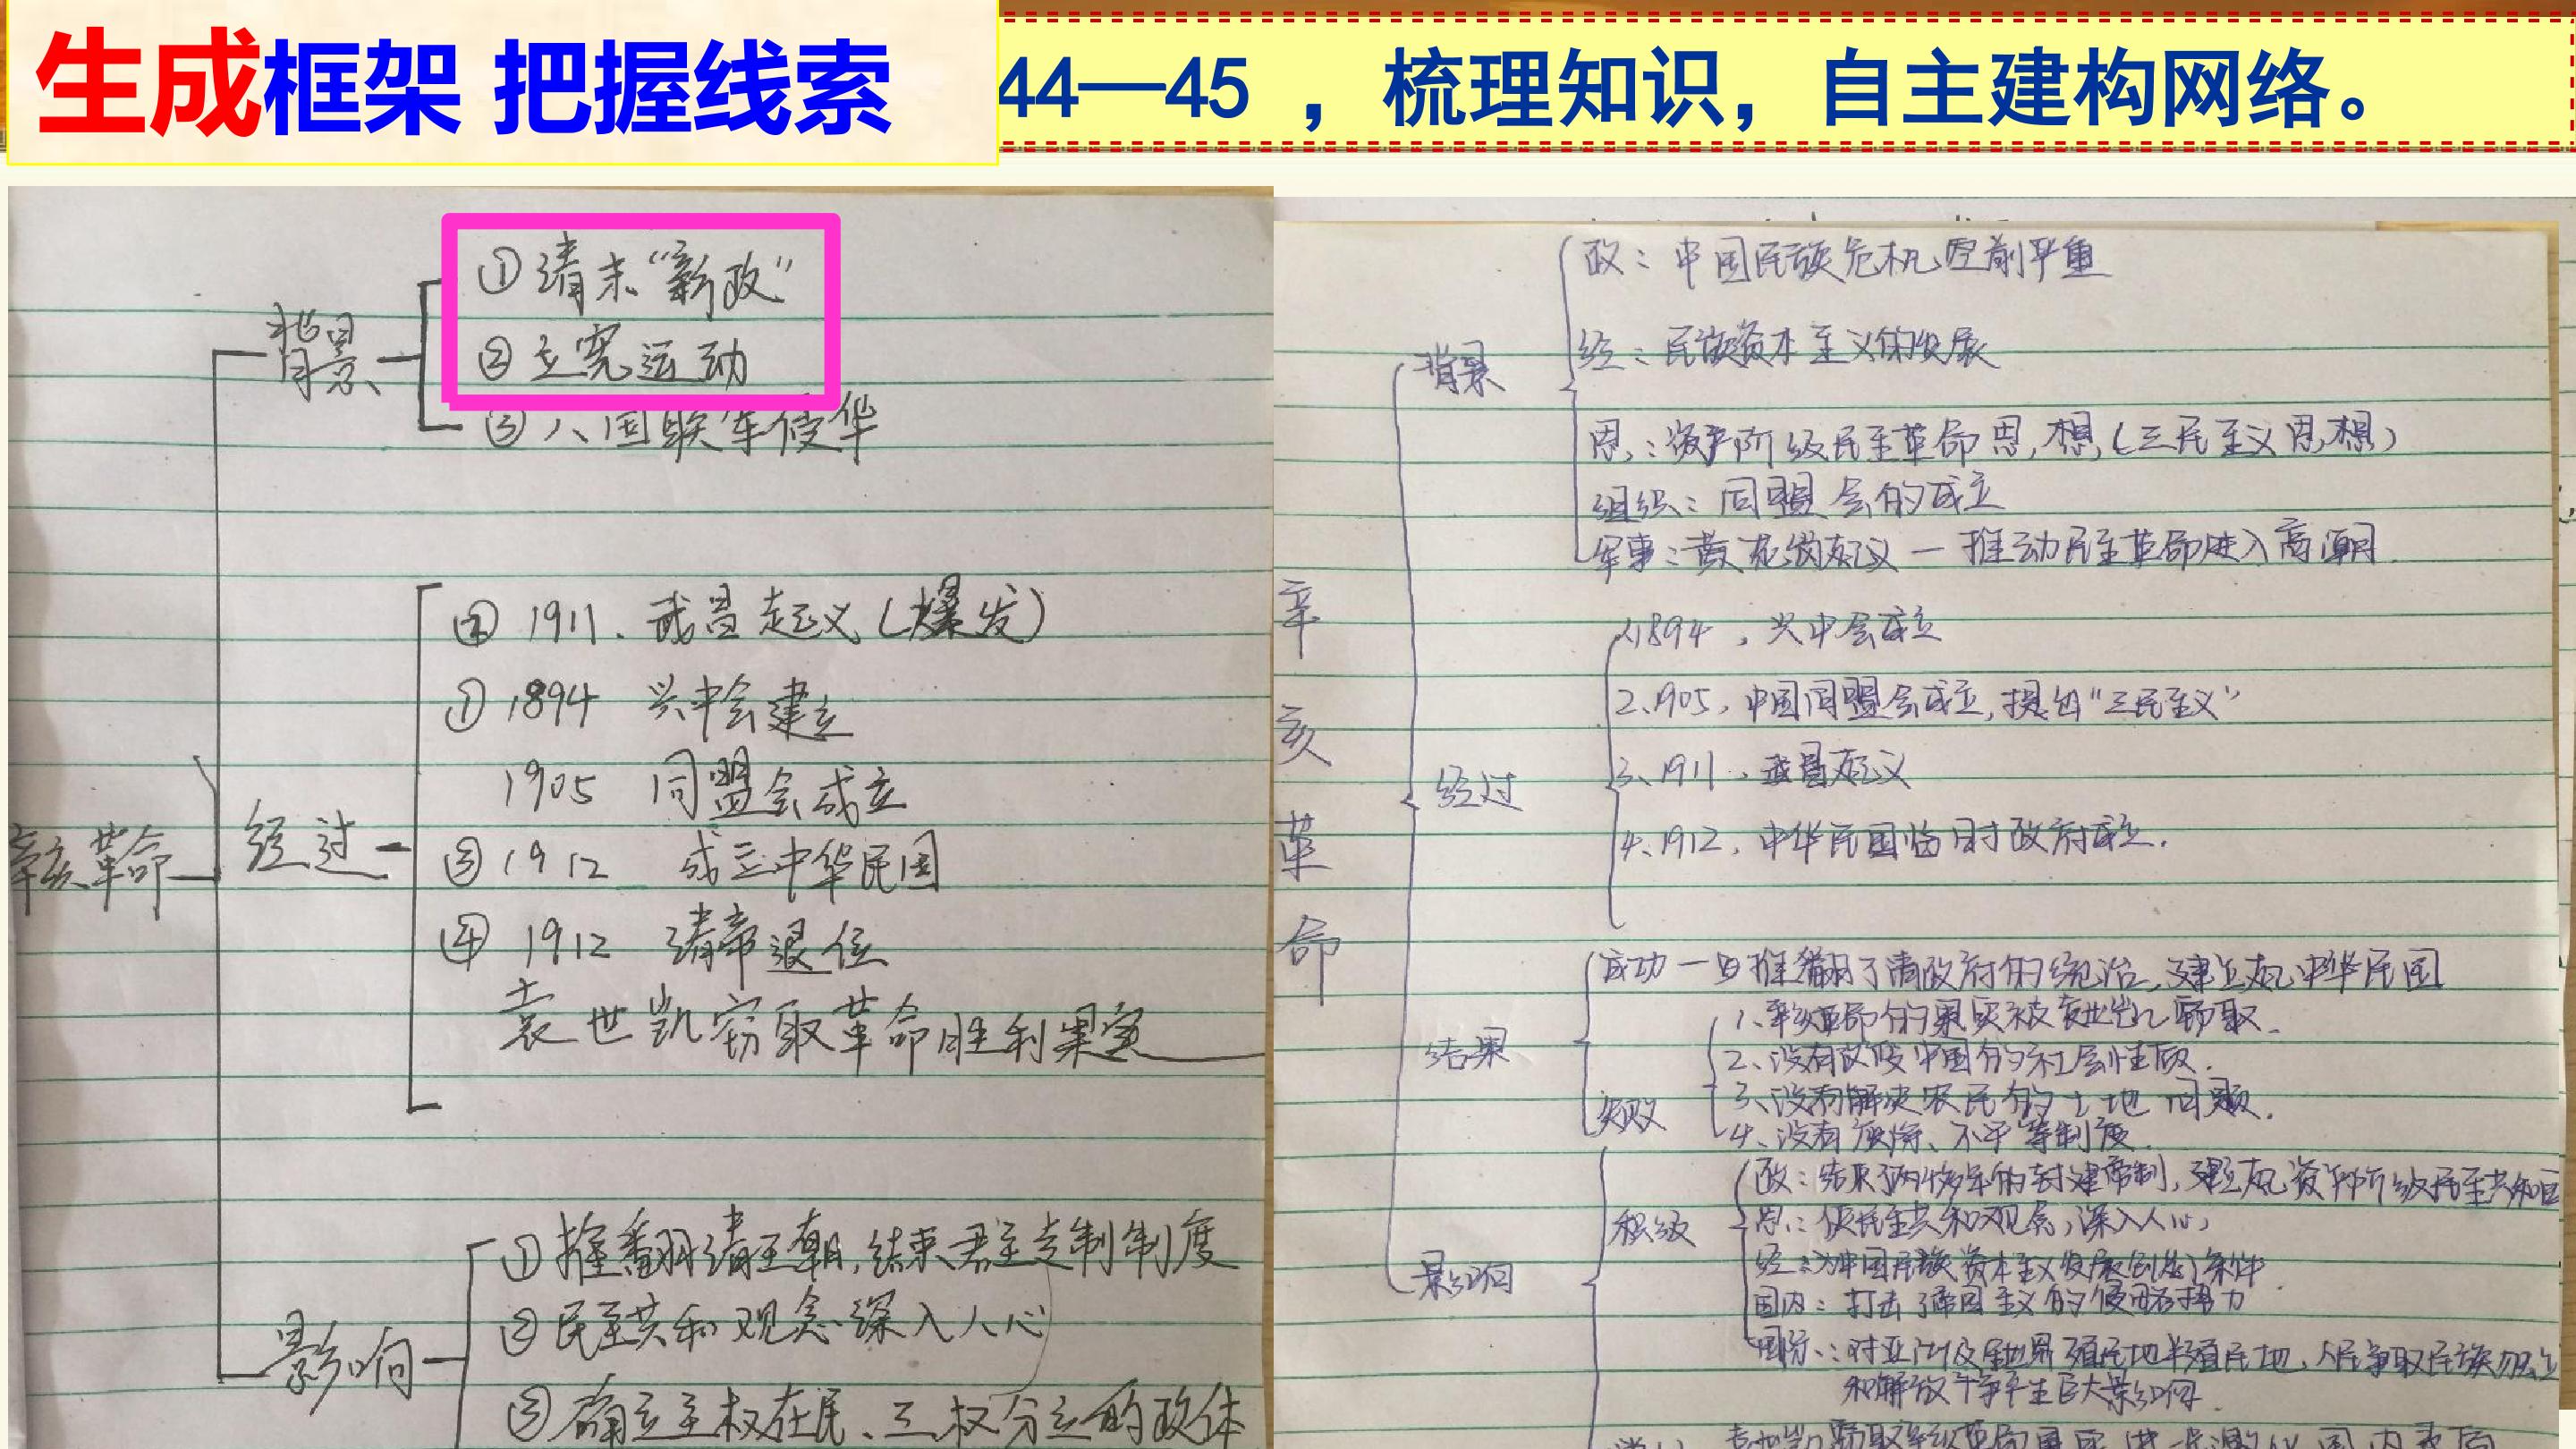 生成框架 把握线索
44—45 ，梳理知识，自主建构网络。
辛亥革命
背景
①清末“新政”
②立宪运动
③八国联军侵华
经过
② 1911. 武昌起义(爆发)
① 1894 兴中会建立
1905 同盟会成立
③ 1912 成立中华民国
④ 1912 清帝退位
袁世凯窃取革命胜利果实
影响
①推翻清王朝,结束君主专制制度
②民主共和观念深入人心
③确立主权在民、三权分立的政体
辛亥革命
背景
政：中国民族危机空前严重
经：民族资本主义的发展
思：资产阶级民主革命思想(三民主义思想)
组织：同盟会的成立
军事：黄花岗起义—推动民主革命进入高潮.
经过
1、1894，兴中会成立
2、1905，中国同盟会成立,提出“三民主义”
3、1911、武昌起义
4、1912，中华民国临时政府成立.
结果
成功—推翻了清政府的统治,建立起中华民国
失败
1、辛亥革命的果实被袁世凯窃取.
2、没有改变中国的社会性质.
3、没有解决农民的土地问题.
4、没有废除、不平等制度.
影响
积极
政：结束了两千多年的封建帝制,建立起资产阶级民主共和国
思：使民主共和观念,深入人心,
经：为中国民族资本主义发展创造了条件.
国内：打击了帝国主义的侵略势力
国际：对亚洲及全世界殖民地半殖民地、人民争取民族独立
和解放斗争产生巨大影响.